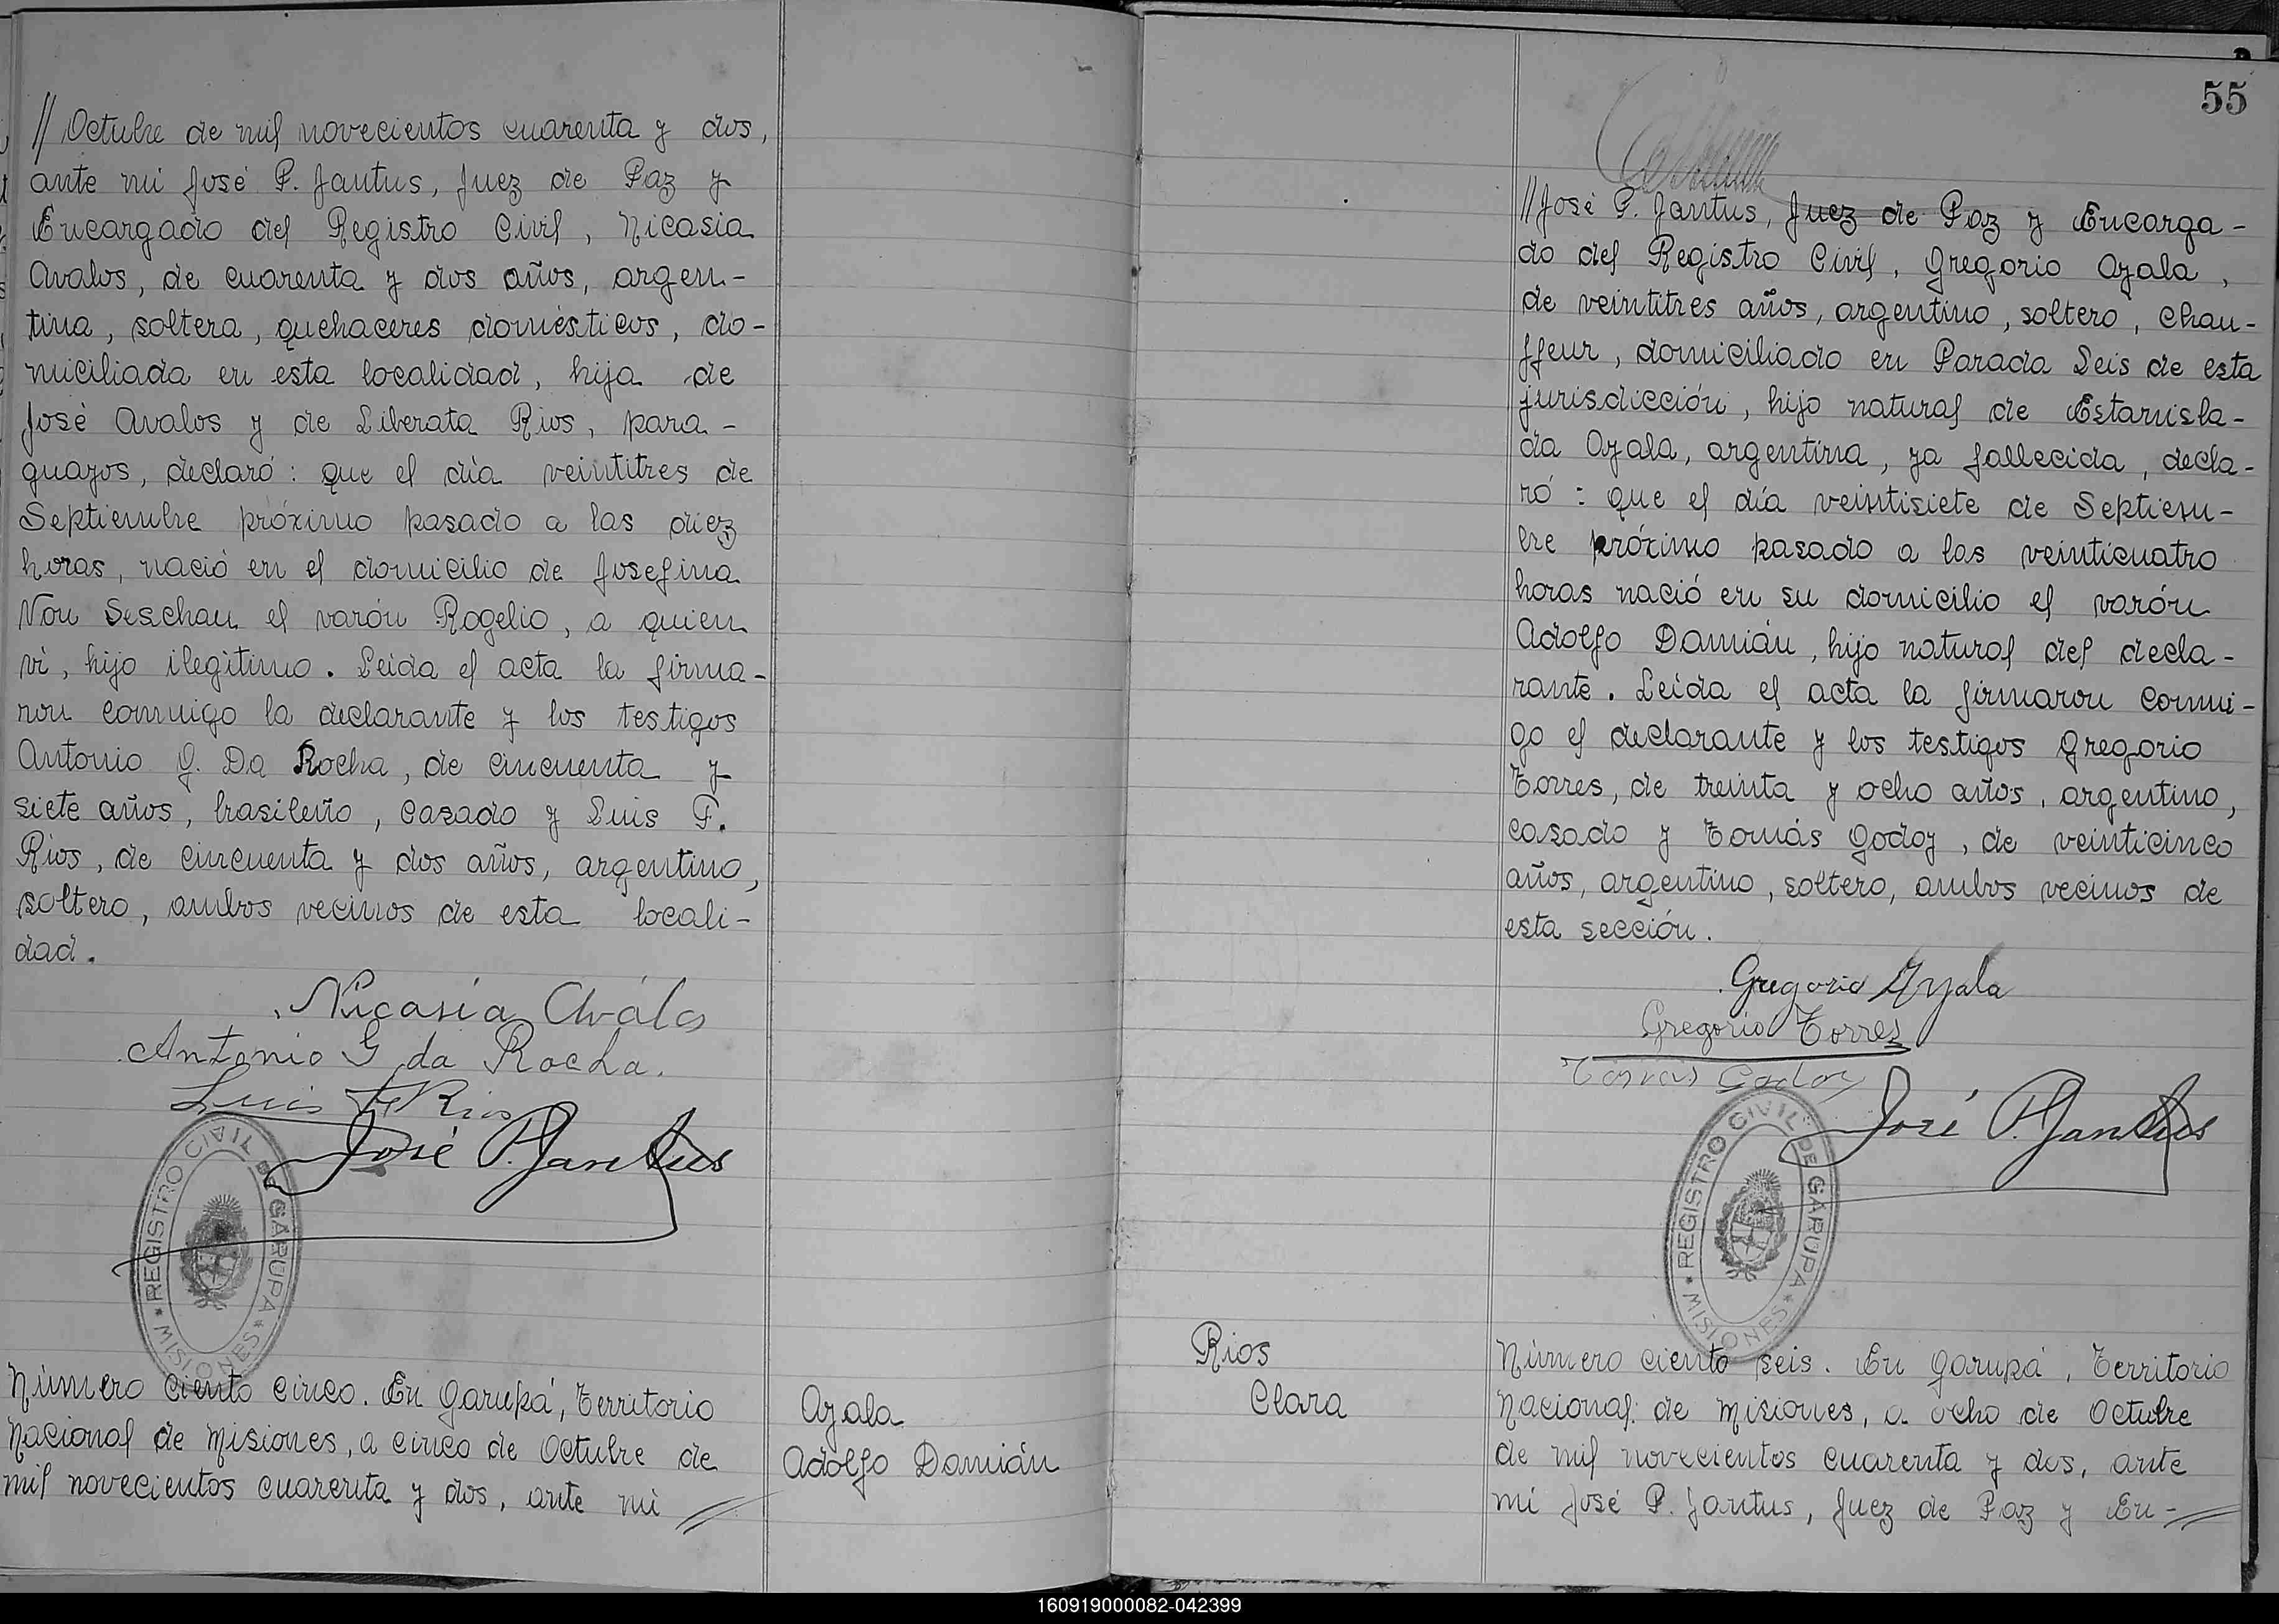 // Octubre de mil novecientos cuarenta y dos,
ante mi José P. Jantus, Juez de Paz y
Encargado del Registro Civil, Nicasia
Avalos, de cuarenta y dos años, argen-
tina, soltera, quehaceres domésticos, do-
miciliada en esta localidad, hija de
José Avalos y de Liberata Rios, para-
guayos, declaró: que el día veintitres de
Septiembre próximo pasado a las diez
horas, nació en el domicilio de Josefina
Von Seschau el varón Rogelio, a quien
vi, hijo ilegitimo. Leida el acta la firma-
ron conmigo la declarante y los testigos
Antonio G. Da Rocha, de cincuenta y
siete años, brasileño, casado y Luis F.
Rios, de cincuenta y dos años, argentino,
soltero, ambos vecinos de esta locali-
dad.
Nicasia Aválos
Antonio G da Rocha.
Luis F Rios
José P. Jantus
REGISTRO CIVIL DE GARUPA
* MISIONES *
Número ciento cinco. En Garupá, Territorio
Nacional de Misiones, a cinco de Octubre de
mil novecientos cuarenta y dos, ante mi //
Ayala
Adolfo Damián
55
// José P. Jantus, Juez de Paz y Encarga-
do del Registro Civil, Gregorio Ayala,
de veintitres años, argentino, soltero, chau-
ffeur, domiciliado en Parada Seis de esta
jurisdicción, hijo natural de Estanisla-
da Ayala, argentina, ya fallecida, decla-
ró: que el día veintisiete de Septiem-
bre próximo pasado a las veinticuatro
horas nació en su domicilio el varón
Adolfo Damián, hijo natural del decla-
rante. Leida el acta la firmaron conmi-
go el declarante y los testigos Gregorio
Torres, de treinta y ocho años, argentino,
casado y Tomás Godoy, de veinticinco
años, argentino, soltero, ambos vecinos de
esta sección.
Gregorio Ayala
Gregorio Torres
Tomas Godoy
José P. Jantus
REGISTRO CIVIL DE GARUPA
* MISIONES *
Rios
Clara
Número ciento seis. En Garupá, Territorio
Nacional de Misiones, a ocho de Octubre
de mil novecientos cuarenta y dos, ante
mi José P. Jantus, Juez de Paz y En- //
160919000082-042399